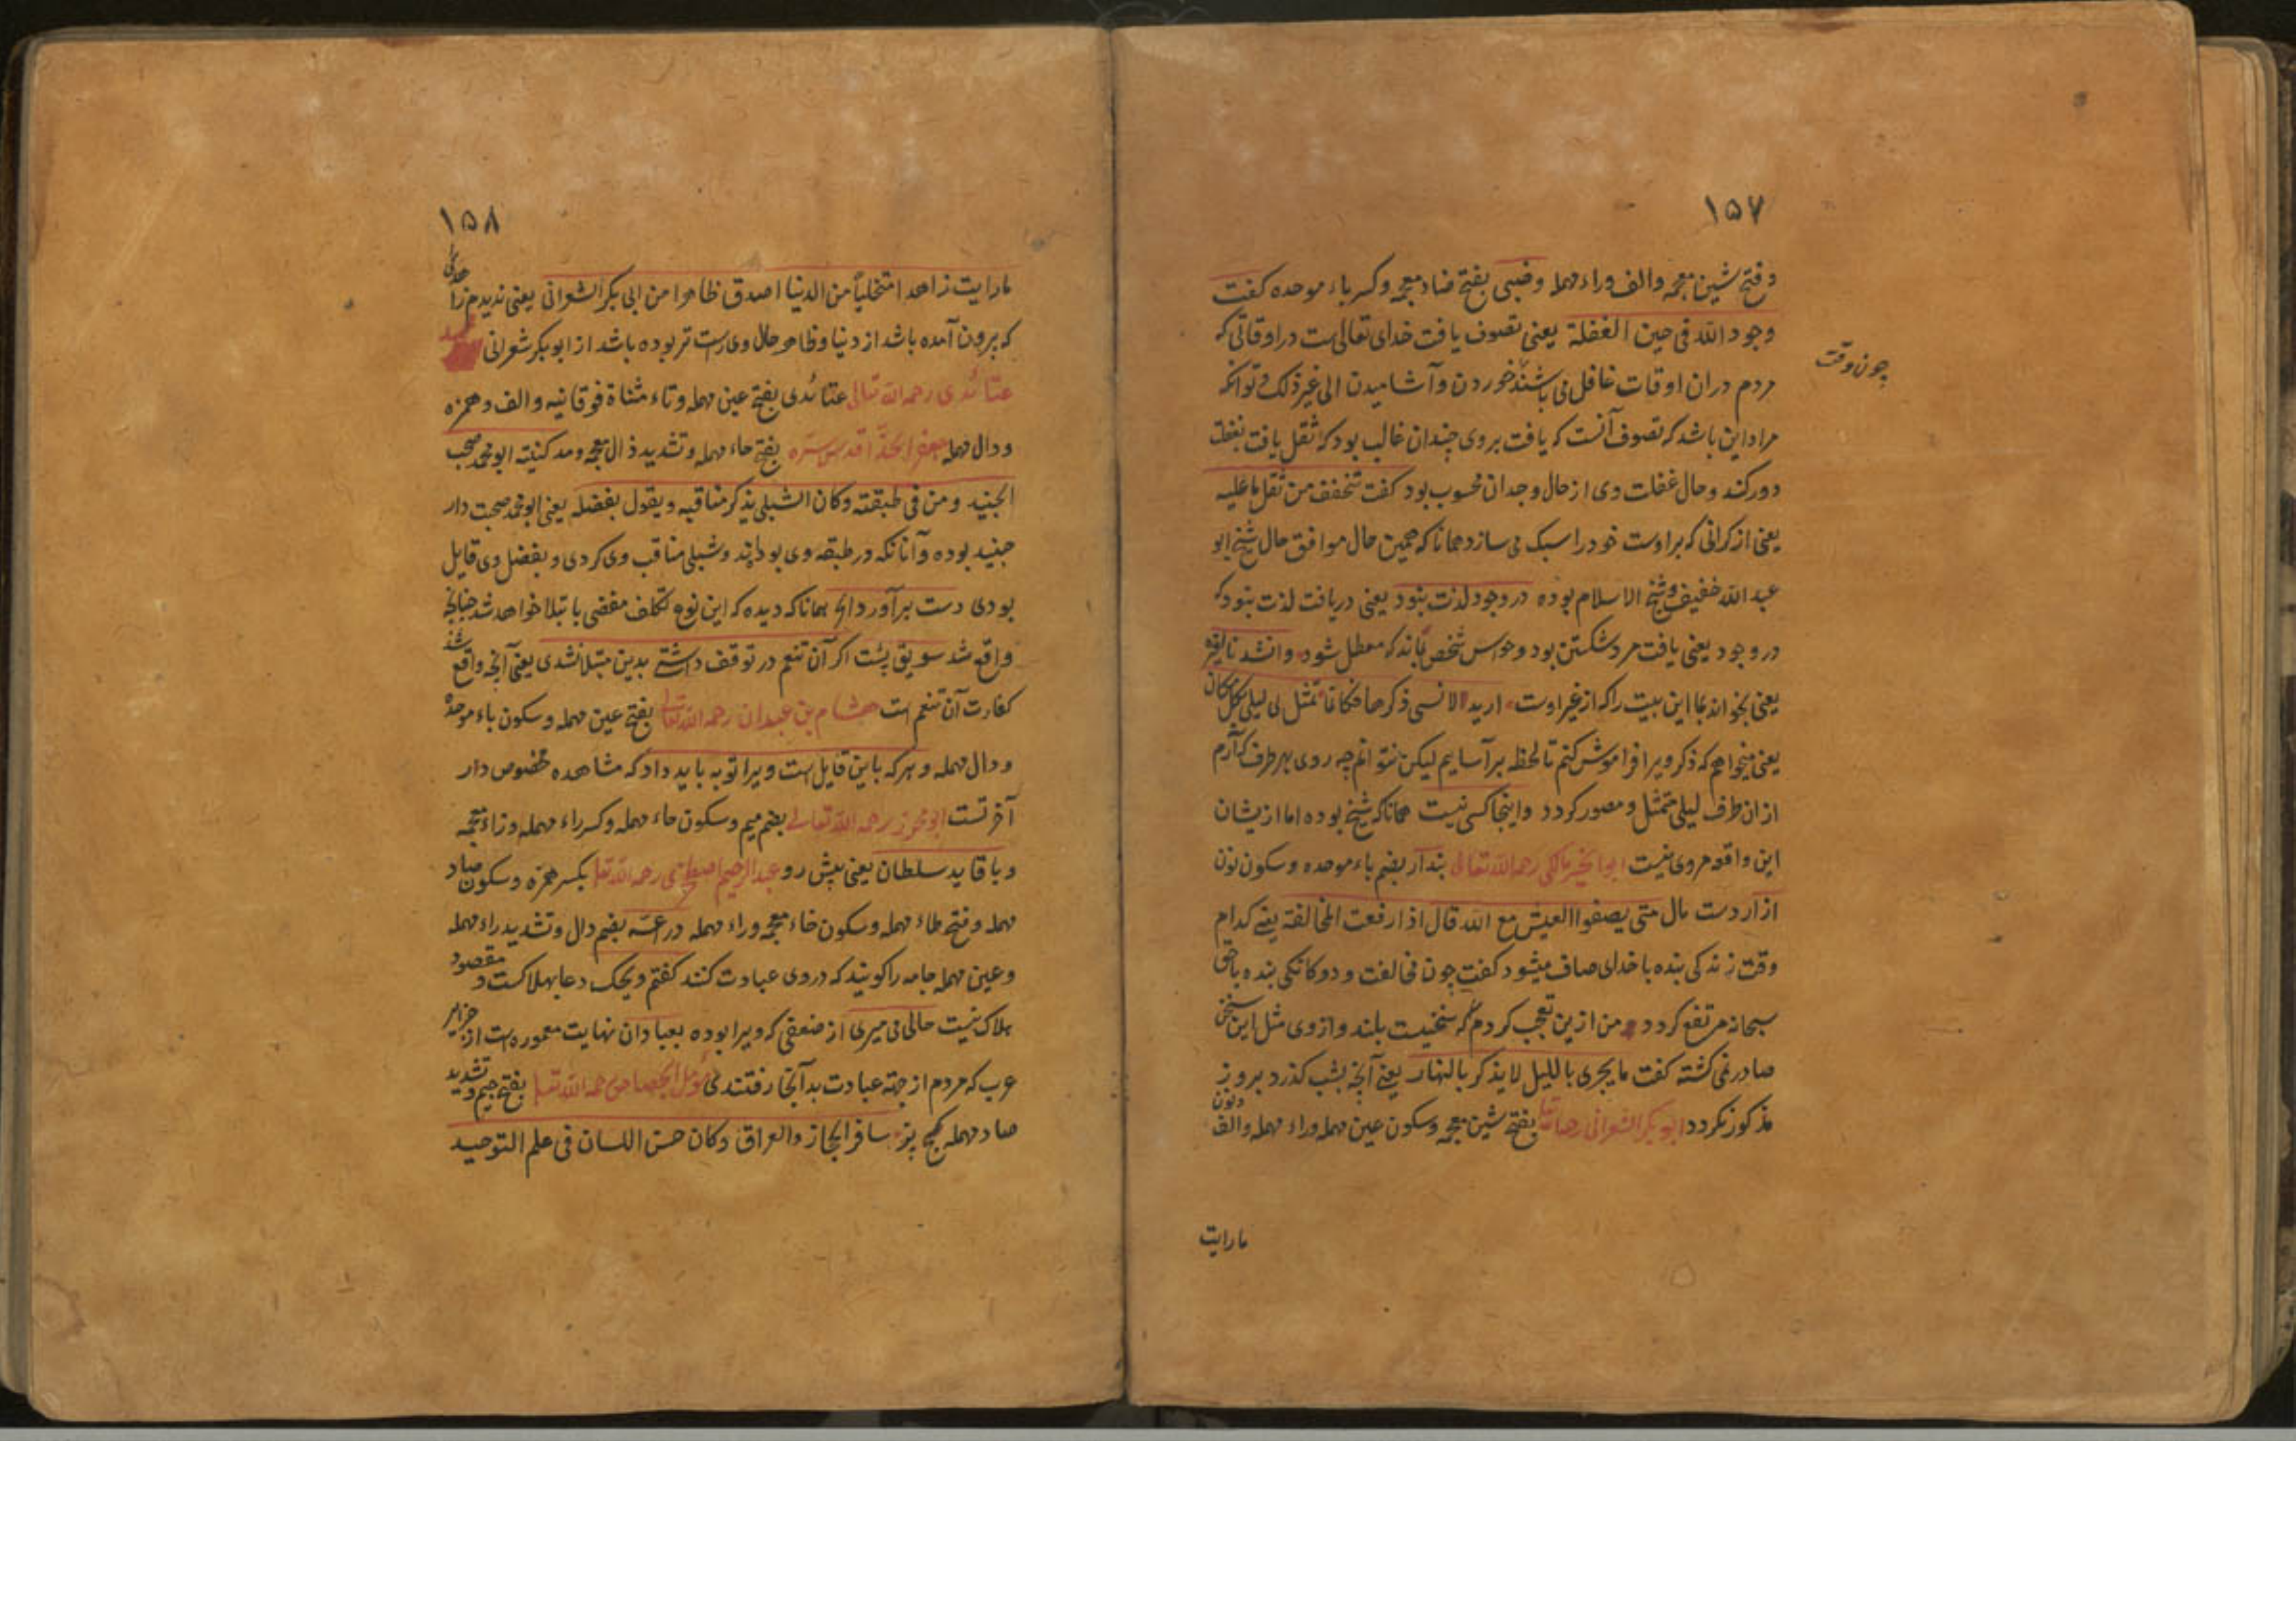 ١٥٧
وفتح شین معجمه والف وراء مهمله وضبی بفتح ضاد معجمه وکسر باء موحده کفت
وجود الله فی حین الغفلة یعنی تصوف یافت خدای تعالی ست در اوقاتی که
چون وقت
مردم دران اوقات غافل می باشند خوردن وآشامیدن الی غیر ذلک تواند
مراد این باشد که تصوف آنست که یافت بروی چندان غالب بود که ثقل یافت بغفلت
دور کند وحال غفلت وی از حال وجدان محسوب بود کفت تخفف من ثقل ما علیه
یعنی از کرانی که براوست خود را سبک می سازد همانا که همین حال موافق حال شیخ ابو
عبد الله خفیف وشیخ الاسلام بوده در وجود لذت نبود یعنی دریافت لذت نبود که
در وجود یعنی یافت مرد شکستن بود وحواس شخص نماند که معطل شود وانشد
یعنی بخواند بما این بیت را که از غیر اوست ارید لانسی ذکرها فکانما تمثل لی لیلی بکل مکان
یعنی میخواهم که ذکر ویرا فراموش کنم تا لحظه برآسایم لیکن نتوانم چه روی بهر طرف که آرم
ازان طرف لیلی متمثل ومصور کردد واینجا کسی نیست همانا که شیخ بوده اما از یشان
این واقعه مروی نیست ابو الخیر مالکی رحمه الله تعالی بندار بضم باء موحده وسکون نون
ازار دست مال متی یصفوا العیش مع الله قال اذا رفعت المخالفة یعنی کدام
وقت زندکی بنده با خدای صاف میشود کفت چون مخالفت ودوکانکی بنده با حق
سبحانه مرتفع کردد من ازین تعجب کردم که سخنیست بلند واز وی مثل این سخنی
صادر نمی کشته کفت ما یجری باللیل لا یذکر بالنهار یعنی آنچه بشب کذرد بروز
مذکور نکردد ابو بکر الشعرانی رحمه الله تعالی بفتح شین معجمه وسکون عین مهمله وراء مهمله والف ونون
ما رایت
١٥٨
ما رایت زاهدا متخلیاً من الدنیا اصدق ظاهرا من ابی بکر الشعرانی یعنی ندیدم زاهدی را
که برون آمده باشد از دنیا وظاهر حال وی راست تر بوده باشد از ابوبکر شعرانی
عتائدی رحمه الله تعالی عتائدی بفتح عین مهمله وتاء مثناة فوقانیه والف وهمزه
ودال مهمله جعفر الحذّا قدس سرّه بفتح حاء مهمله وتشدید ذال معجمه ومد کنیته ابو محمد صحب
الجنید ومن فی طبقته وکان الشبلی یذکر مناقبه ویقول بفضله یعنی ابو محمد صحبت دار
جنید بوده وآنانکه در طبقه وی بوده اند وشبلی مناقب وی کردی وبفضل وی قایل
بودی دست برآورد همانا که دیده که این نوع تکلف مفضی بابتلا خواهد شد چنانچه
واقع شد سویق پِسْت اکر آن تنعم در توقف داشتے بدین مبتلا نشدی یعنی آنچه واقع شد
کفارت آن تنعم است هشام بن عبدان رحمه الله تعالی بفتح عین مهمله وسکون باء موحده
ودال مهمله وهر که باین قایل است ویرا توبه باید داد که مشاهده مخصوص دار
آخرتست ابو محرز رحمه الله تعالی بضم میم وسکون حاء مهمله وکسر راء مهمله وزاء معجمه
وبا قاید سلطان یعنی پیش رو عبد الرحیم اصطخری رحمه الله تعالی بکسر همزه وسکون صاد
مهمله وفتح طاء مهمله وسکون خاء معجمه وراء مهمله درعته بضم دال وتشدید راء مهمله
وعین مهمله جامه را کویند که در وی عبادت کنند کفتم ویحک دعا بهلاکست ومقصود
هلاک نیست حالی می میری از ضعفی که ویرا بوده بعبادان نهایت معموره است از جزایر
عرب که مردم از جهته عبادت بدانجا رفتندی مؤمل الجصاص رحمه الله تعالی بفتح جیم وتشدید
صاد مهمله کچ پز سافر الحجاز والعراق وکان حسن اللسان فی علم التوحید